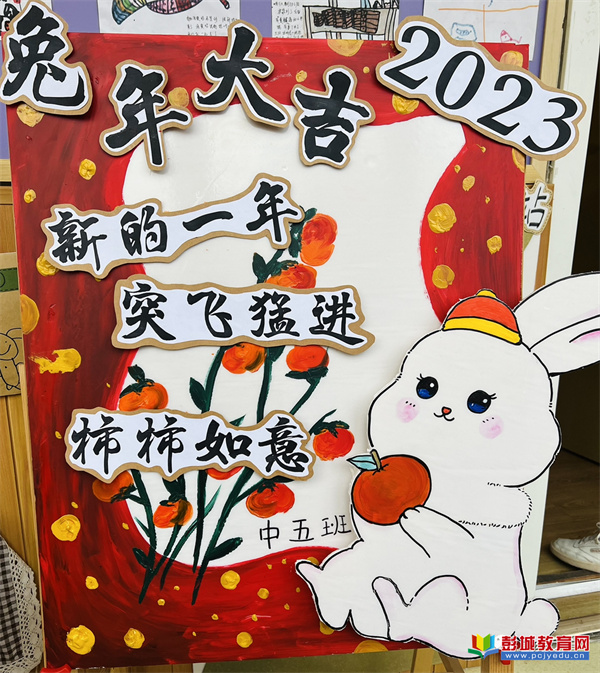 兔年大吉
2023
新的一年
突飞猛进
柿柿如意
中五班
站
彭城教育网
www.pcjyedu.cn